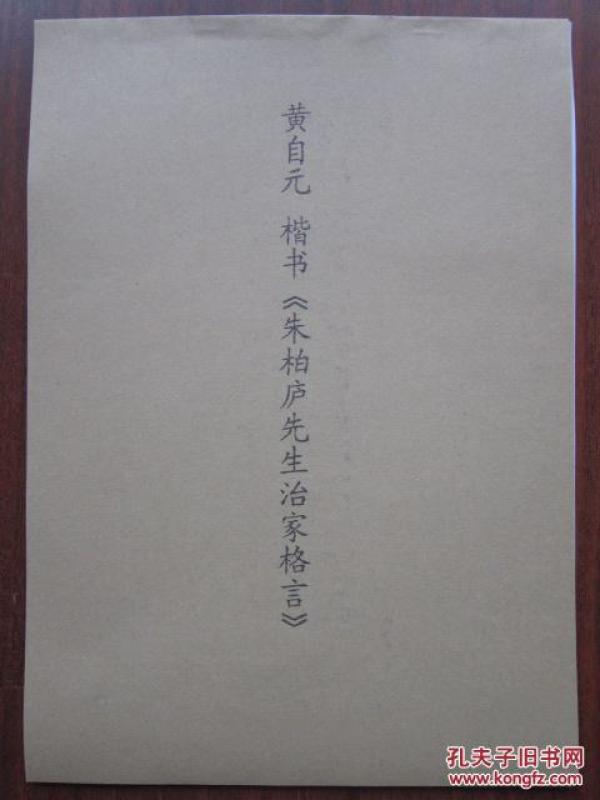 黄自元 楷书《朱柏庐先生治家格言》
孔夫子旧书网
www.kongfz.com